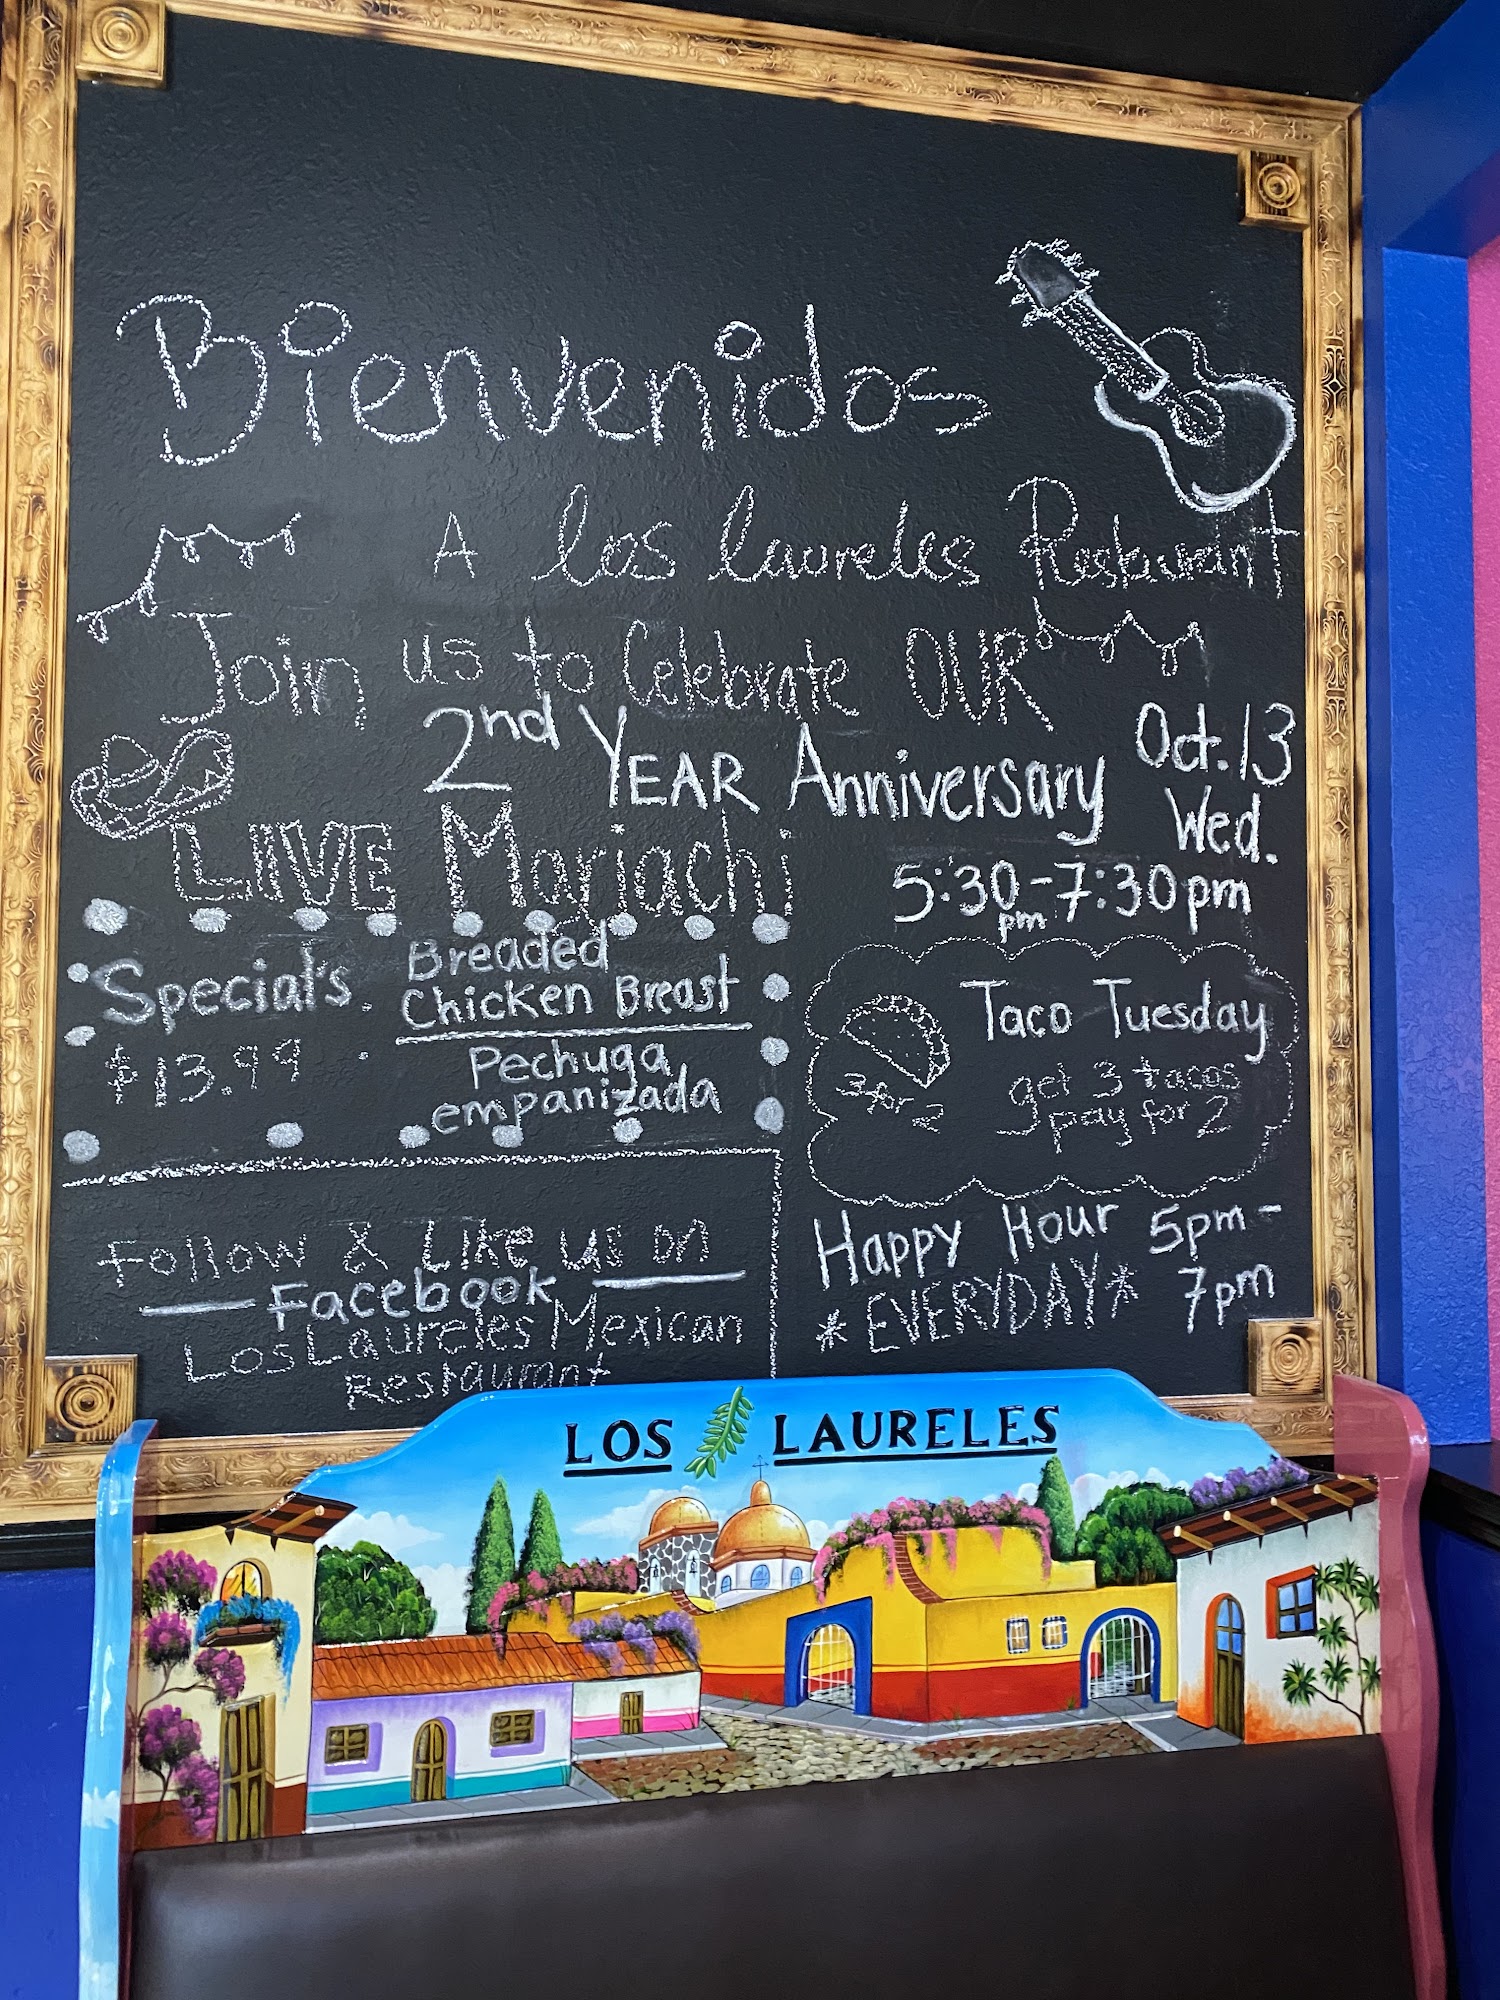 Bienvenidos
A los laureles Restaurant
Join us to Celebrate OUR
2nd YEAR Anniversary
Oct. 13
Wed.
5:30pm-7:30pm
LIVE Mariachi
Special's.
$13.99
Breaded
Chicken Breast
Pechuga
empanizada
Taco Tuesday
3 for 2
get 3 tacos
pay for 2
Follow & Like us on
Facebook
Los Laureles Mexican
Restaurant
Happy Hour 5pm-
*EVERYDAY* 7pm
LOS LAURELES